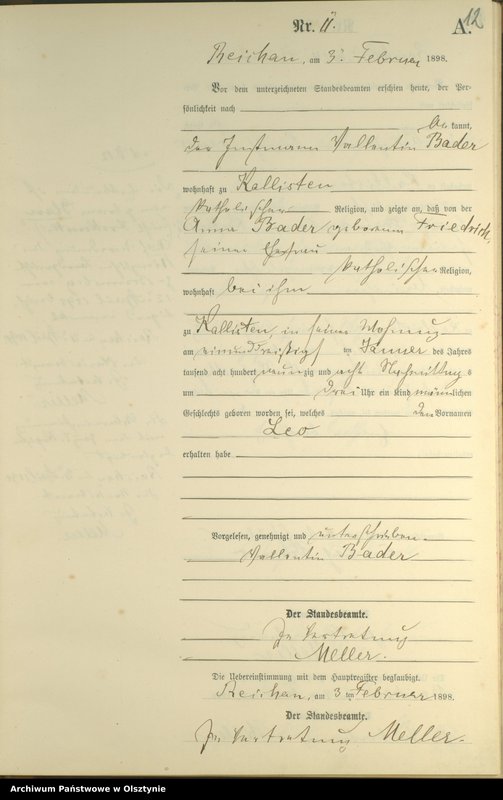 12
Nr. 11. A.
Reichau, am 3ᵗ Februar 1898.
Vor dem unterzeichneten Standesbeamten erschien heute, der Per-
sönlichkeit nach
be kannt,
der Instmann Vallentin Bader
wohnhaft zu Kallisten
katholischer Religion, und zeigte an, daß von der
Anna Bader geborenen Friedrich,
seiner Ehefrau
katholischer Religion,
wohnhaft bei ihm
zu Kallisten, in seiner Wohnung
am einunddreißigs ten Januar des Jahres
tausend acht hundert neunzig und acht Nachmittag s
um drei Uhr ein Kind männlichen
Geschlechts geboren worden sei, welches den Vornamen
Leo
erhalten habe
Vorgelesen, genehmigt und unterschrieben.
Vallentin Bader
Der Standesbeamte.
In Vertretung
Meller.
Die Uebereinstimmung mit dem Hauptregister beglaubigt.
Reichau, am 3 ten Februar 1898.
Der Standesbeamte.
In Vertretung Meller.
Archiwum Państwowe w Olsztynie